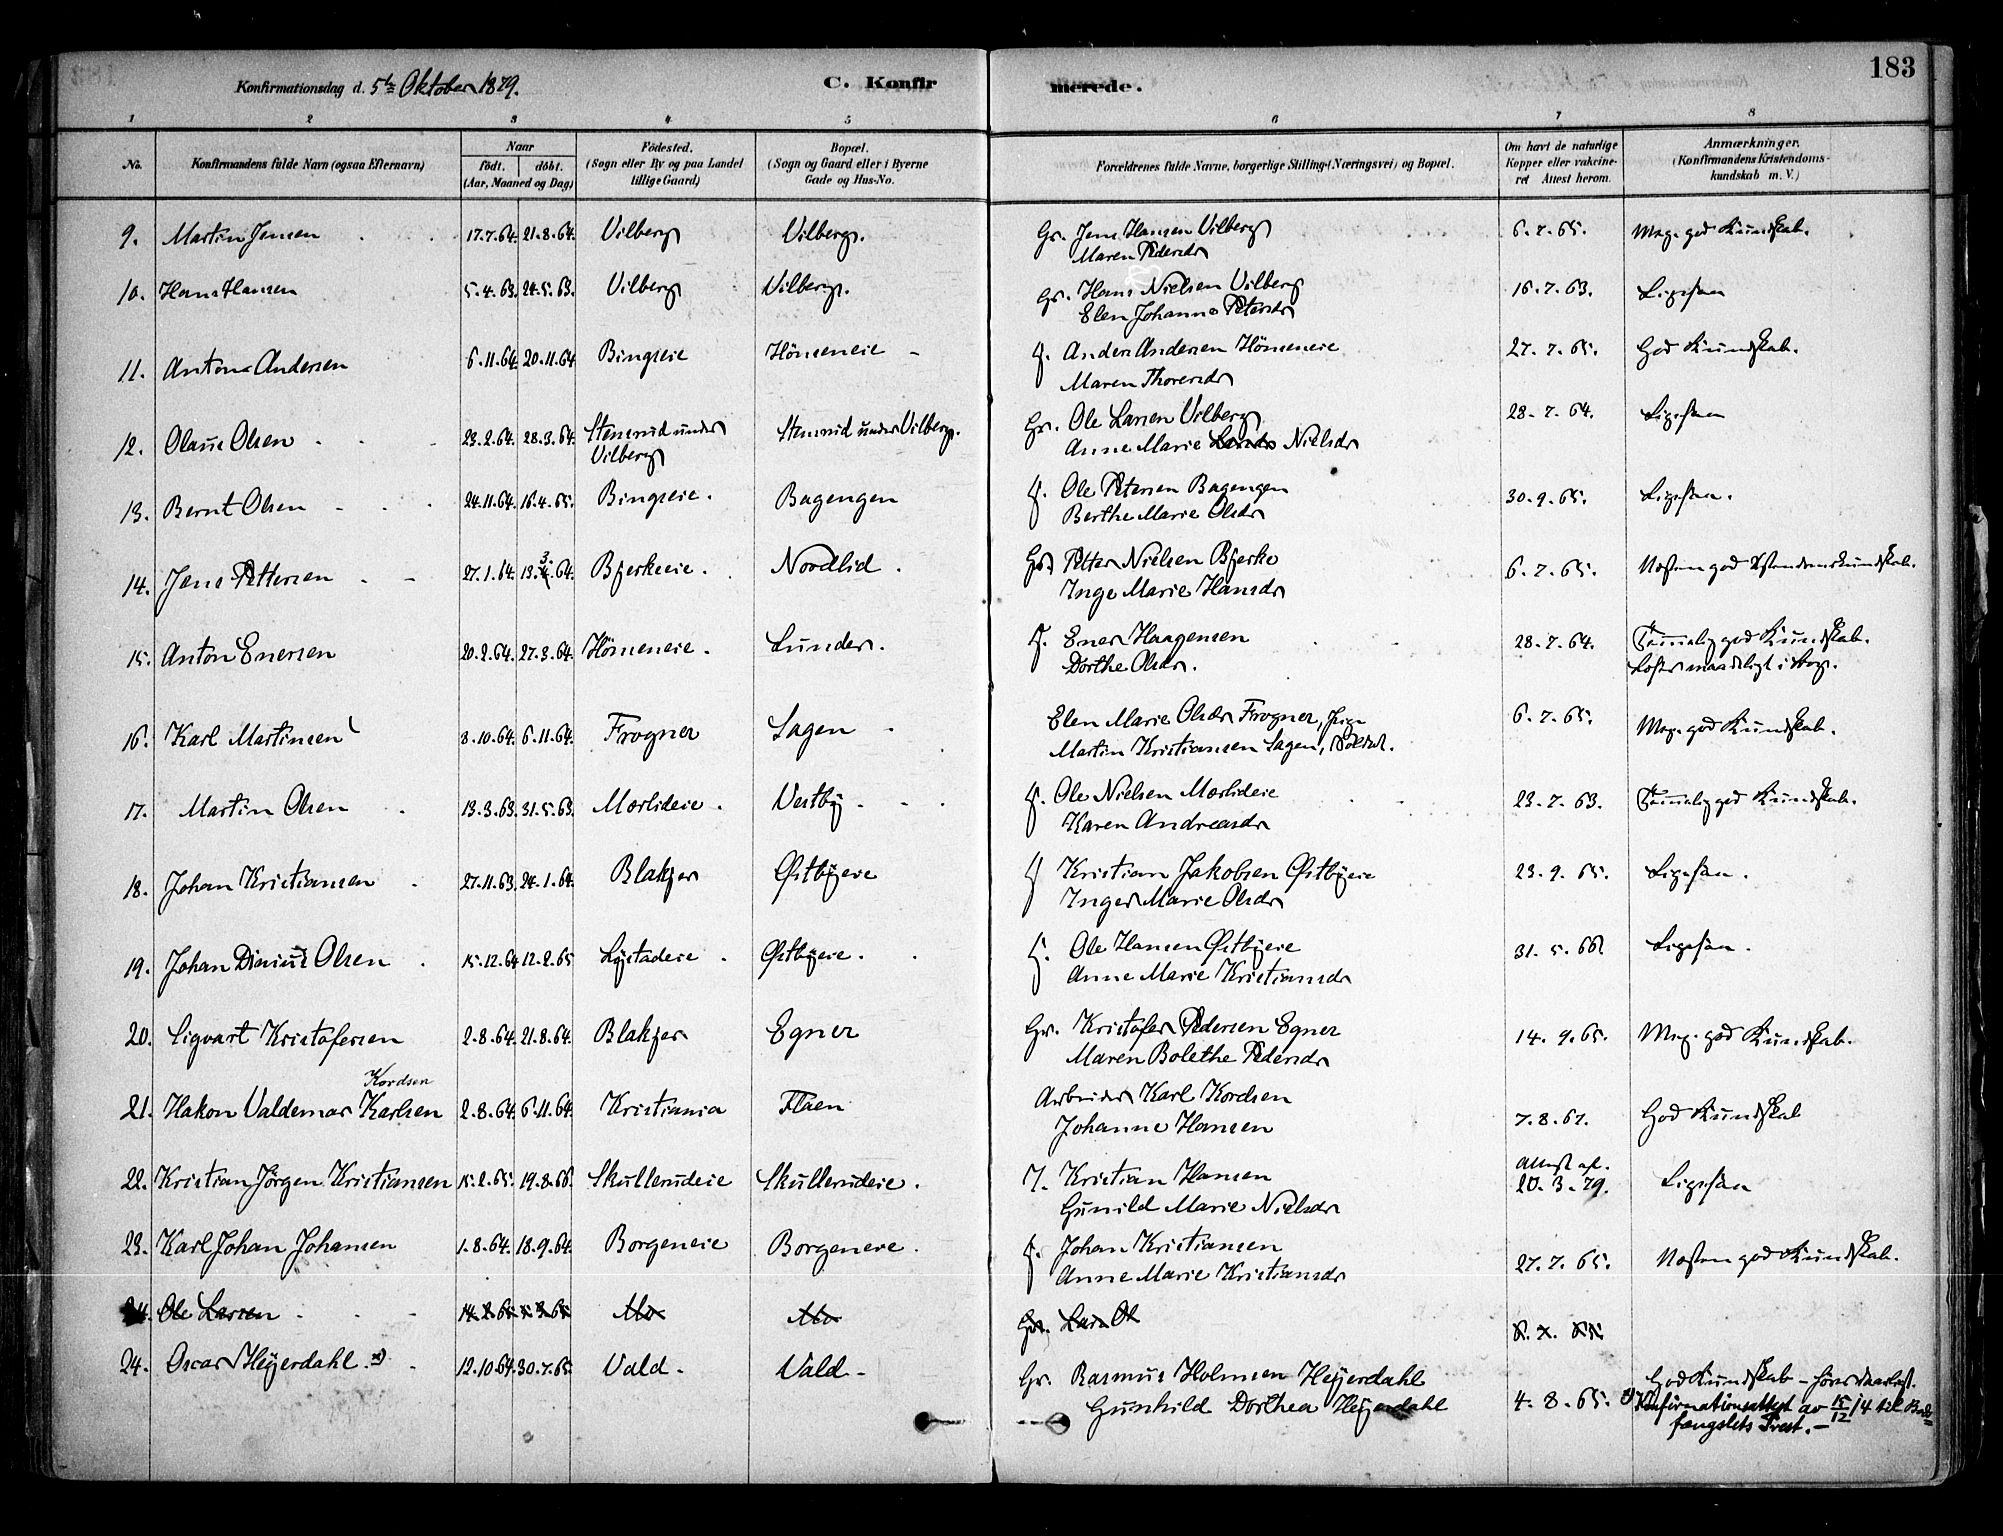 183
Konfirmationsdag d. 5te Oktober 1879. C. Konfirmerede.
1 2 3 4 5 6 7 8
No. Konfirmandens fulde Navn (ogsaa Efternavn) Naar født. døbt. (Aar, Maaned og Dag) Fødested. (Sogn eller By og paa Landet tillige Gaard) Bopæl. (Sogn og Gaard eller i Byerne Gade og Hus-No. Forældrenes fulde Navne, borgerlige Stilling (Næringsvei) og Bopæl. Om havt de naturlige Kopper eller vakcineret Attest herom. Anmærkninger. (Konfirmandens Kristendomskundskab m. V.)
9. Martin Jensen 17.7.64. 21.8.64. Vilberg Vilberg. Gr. Jens Hansen Vilberg 6.7.65. Meg. god Kundskab.
Maren Pedersdr
10. Hans Hansen 5.4.63. 24.5.63. Vilberg Vilberg. Gr. Hans Nielsen Vilberg 16.7.63. Ligesaa
Elen Johanne Petersdr
11. Anton Andersen 6.11.64. 20.11.64 Bingseie Hömeneie F. Anders Andersen Hömeneie 27.7.65. God Kundskab.
Maren Thoresdr
12. Olaus Olsen 23.2.64. 28.3.64. Stensrud under Vilberg Stensrud under Vilberg. Gr. Ole Larsen Vilberg 28.7.64. Ligesaa
Anne Marie Nielsdr
13. Bernt Olsen 24.11.64. 16.4.65. Bingseie. Bagengen F. Ole Petersen Bagengen 30.9.65. Ligesaa.
Berthe Marie Olsdr
14. Jens Pettersen 27.1.64. 13.3.64. Bjerkeeie. Nordlid. Gr. Petter Nielsen Bjerke 6.7.65. Næsten god Kristendomskundskab.
Inge Marie Hansdr
15. Anton Enersen 20.2.64. 27.3.64. Hömeneie. Lunder. F. Ener Haagensen 28.7.64. Temmelig god Kundskab.
Dorthe Olsdr. Læser maadeligt i Bog.
16. Karl Martinsen 8.10.64. 6.11.64. Frogner Sagen Elen Marie Olsdr Frogner, Pige 6.7.65. Meg. god Kundskab.
Martin Kristiansen Sagen, Soldat.
17. Martin Olsen 13.3.63. 31.5.63. Mærlideie. Vestby. F. Ole Nielsen Mærlideie 23.7.63. Temmelig god Kundskab.
Karen Andreasdr
18. Johan Kristiansen 27.11.63. 24.1.64. Blakjer Østbyeie F Kristian Jakobsen Østbyeie 23.9.65. Ligesaa.
Inger Marie Olsdr
19. Johan Dinius Olsen 15.12.64 12.2.65 Lystadeie. Østbyeie. F. Ole Hansen Østbyeie 31.5.66 Ligesaa.
Anne Marie Kristiansdr
20. Sigvart Kristofersen 2.8.64. 21.8.64. Blakjer Egner Gr. Kristofer Pedersen Egner 14.9.65. Meg. god Kundskab.
Maren Bolethe Pedersdr
Kordsen
21. Hakon Valdemar Karlsen 2.8.64. 6.11.64. Kristiania Flaen Arbeider Karl Kordsen 7.8.67. God Kundskab
Johanne Hansen
22. Kristian Jörgen Kristiansen 15.2.65. 19.8.66. Skullerudeie Skullerudeie. I. Kristian Hansen Attest af. 20.3.79. Ligesaa
Gunild Marie Nielsdr
23. Karl Johan Johansen 1.8.64. 18.9.64. Borgeneie Borgeneie. F. Johan Kristiansen 27.7.65. Næsten god Kundskab.
Anne Marie Kristiansdr
24. Ole Larsen Mo Mo Gr. Lars Ol
24. Oscar Heyerdahl x) 12.10.64. 30.7.65. Vald. Vald. Gr. Rasmus Holmsen Heyerdahl 4.8.65. God Kundskab – hører daarligt.
Gunhild Dorthea Heyerdahl x) Konfirmationsattest av 15/12 14 til Bods=
fængslets Prest.–